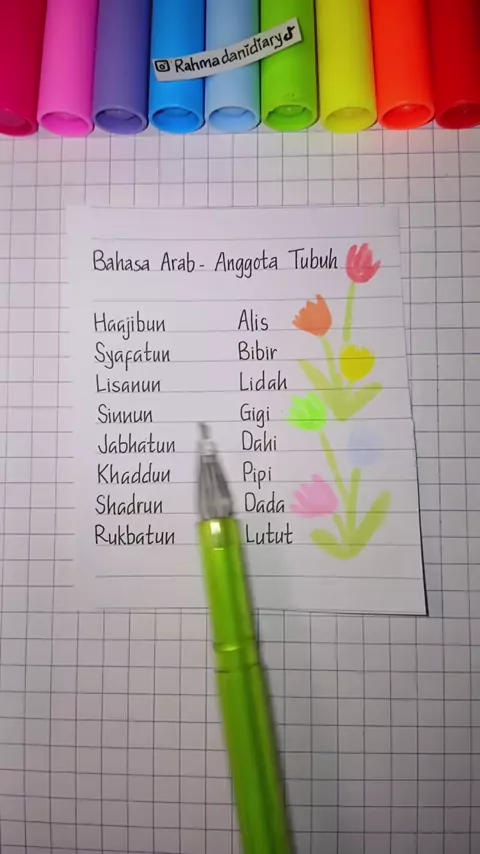 Rahmadanidiary
Bahasa Arab - Anggota Tubuh
Haajibun Alis
Syafatun Bibir
Lisanun Lidah
Sinnun Gigi
Jabhatun Dahi
Khaddun Pipi
Shadrun Dada
Rukbatun Lutut